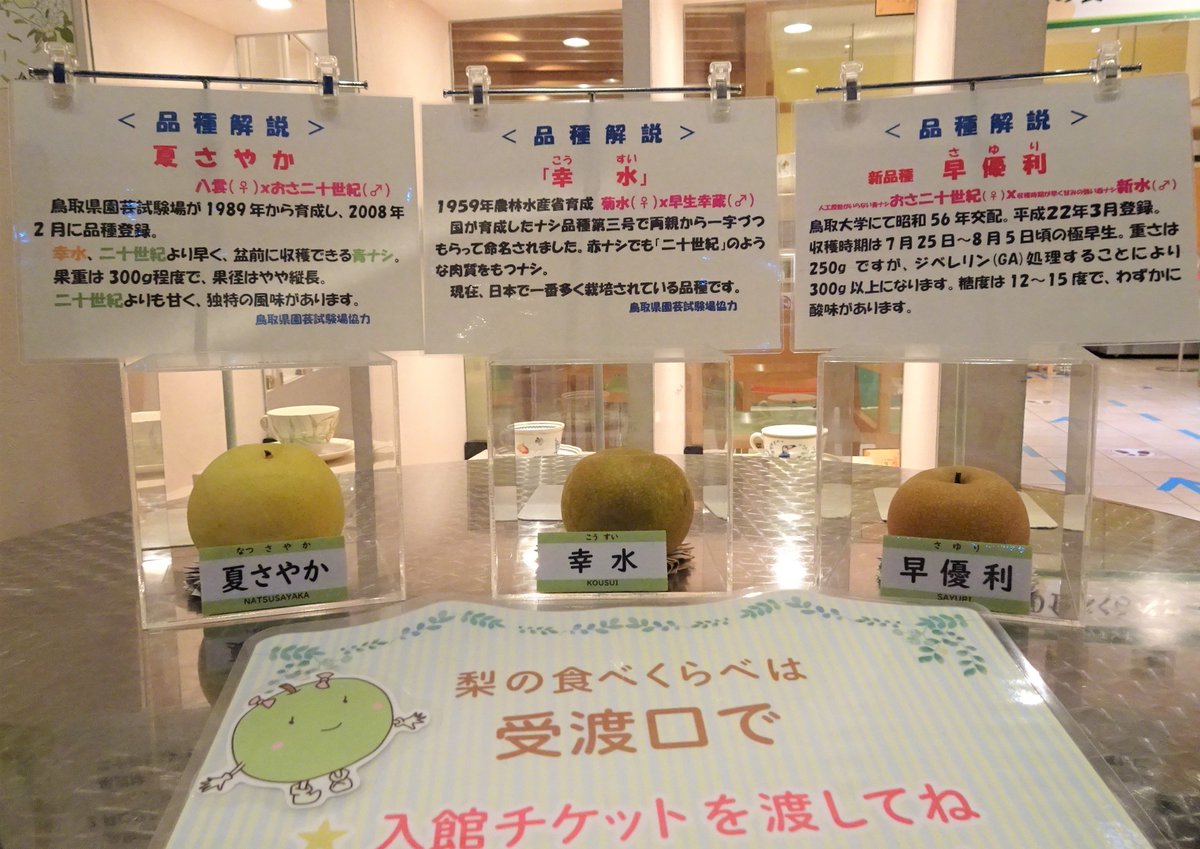 <品種解説>
夏さやか
八雲(♀)xおさ二十世紀(♂)
鳥取県園芸試験場が1989年から育成し、2008年
2月に品種登録。
幸水、二十世紀より早く、盆前に収穫できる青ナシ。
果重は300g程度で、果径はやや縦長。
二十世紀よりも甘く、独特の風味があります。
鳥取県園芸試験場協力
<品種解説>
こう すい
「幸水」
1959年農林水産省育成 菊水(♀)x早生幸蔵(♂)
国が育成したナシ品種第三号で両親から一字づつ
もらって命名されました。赤ナシでも「二十世紀」のよう
な肉質をもつナシ。
現在、日本で一番多く栽培されている品種です。
鳥取県園芸試験場協力
<品種解説>
さ ゆ り
新品種 早優利
人工授粉がいらない青ナシおさ二十世紀(♀)X収穫時期が早く甘みの強い赤ナシ新水(♂)
鳥取大学にて昭和56年交配。平成22年3月登録。
収穫時期は7月25日~8月5日頃の極早生。重さは
250gですが、ジベレリン(GA)処理することにより
300g以上になります。糖度は12~15度で、わずかに
酸味があります。
なつ さ や か
夏さやか
NATSUSAYAKA
こう すい
幸水
KOUSUI
さ ゆ り
早優利
SAYURI
梨の食べくらべは
受渡口で
入館チケットを渡してね